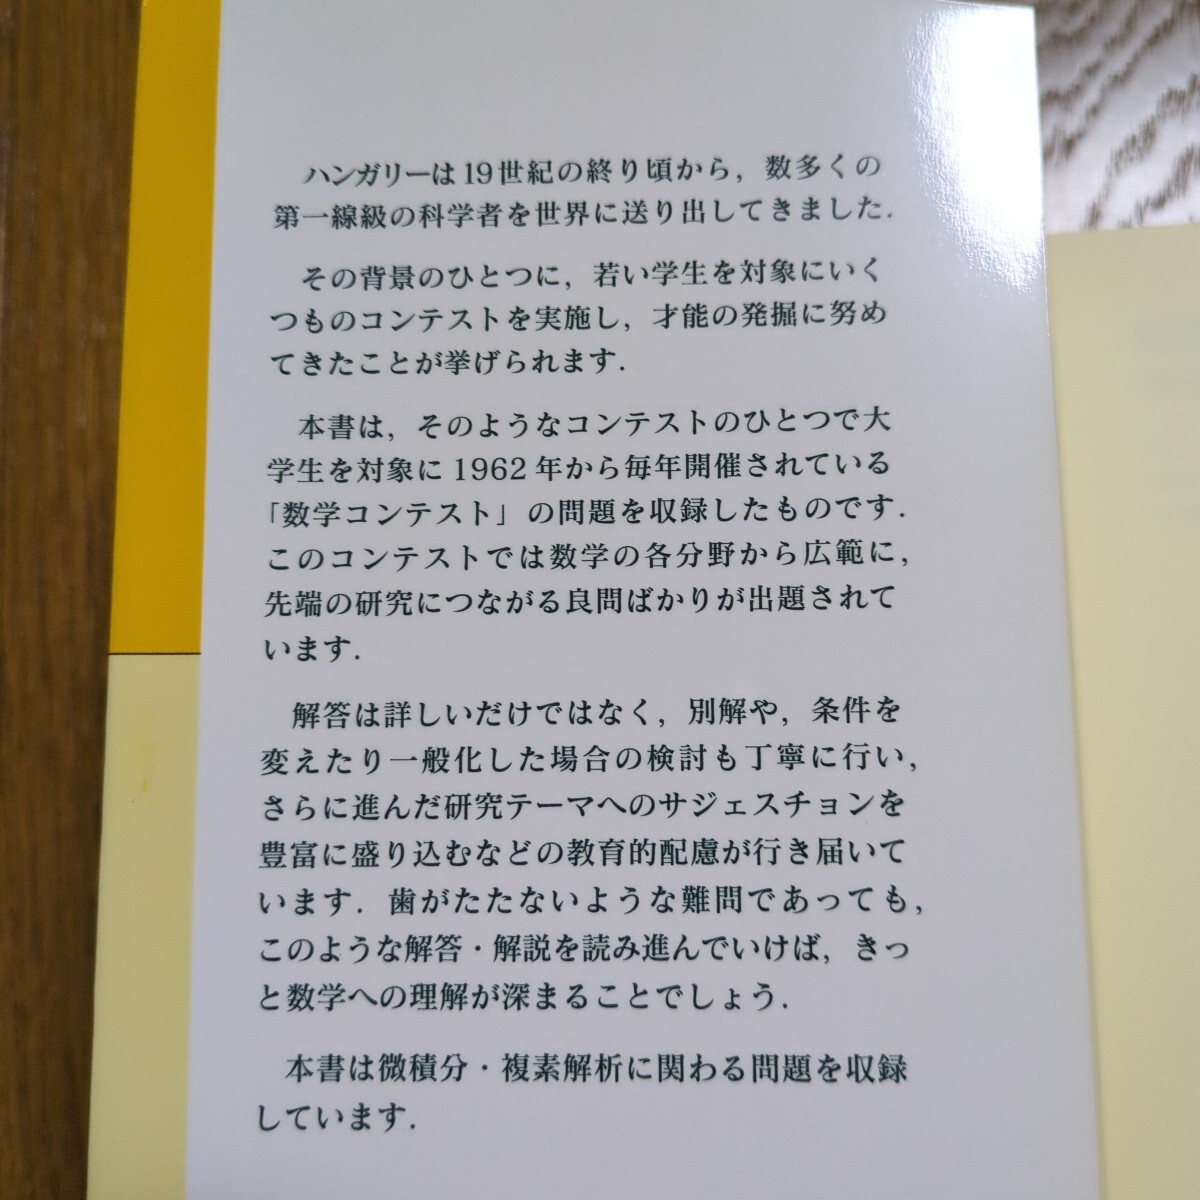 ハンガリーは19世紀の終り頃から，数多くの
第一線級の科学者を世界に送り出してきました．
その背景のひとつに，若い学生を対象にいく
つものコンテストを実施し，才能の発掘に努め
てきたことが挙げられます．
本書は，そのようなコンテストのひとつで大
学生を対象に1962年から毎年開催されている
「数学コンテスト」の問題を収録したものです．
このコンテストでは数学の各分野から広範に，
先端の研究につながる良問ばかりが出題されて
います．
解答は詳しいだけではなく，別解や，条件を
変えたり一般化した場合の検討も丁寧に行い，
さらに進んだ研究テーマへのサジェスチョンを
豊富に盛り込むなどの教育的配慮が行き届いて
います．歯がたたないような難問であっても，
このような解答・解説を読み進んでいけば，きっ
と数学への理解が深まることでしょう．
本書は微積分・複素解析に関わる問題を収録
しています．